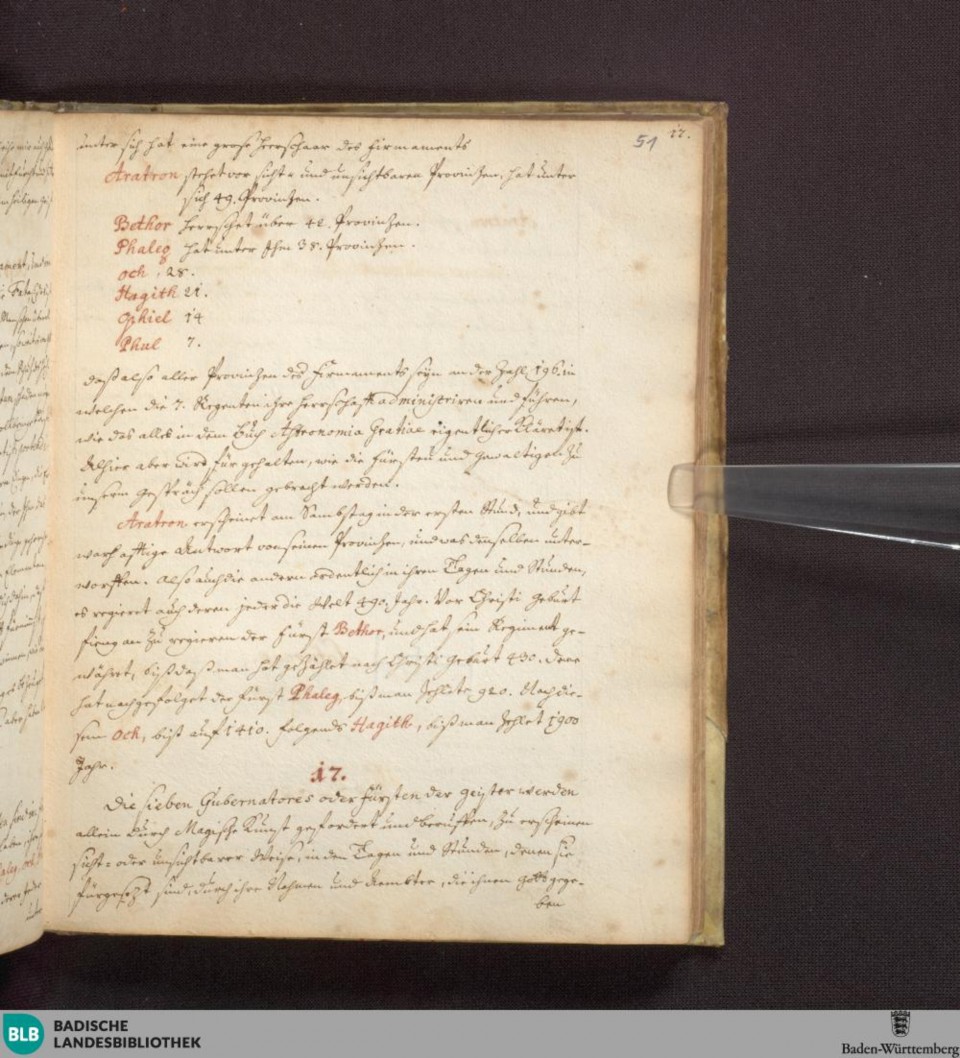 51 17.
unter sich hat eine große Heerschaar des Firmaments
Aratron stehet vor sicht- und unsichtbaren Provintzen, hat unter
sich 49. Provintzen.
Bethor herrschet über 42. Provintzen.
Phaleg hat unter Ihm 35. Provintzen.
Och, 28.
Hagith 21.
Ophiel 14
Phul 7.
daß also aller Provintzen des Firmaments seyn an der Zahl 196. in
welchen die 7. Regenten ihre Herrschafft administriren und führen,
wie das alles in dem Buch Astronomia Gratiae eigentlicher
Alhier aber wird für gehalten, wie die Fürsten und Gewaltigen zu
unserm Gespräch sollen gebracht werden.
Aratron erscheinet am Sambstag in der ersten Stund, und gibt
warhafftige Antwort von seinen Provintzen, und was denselben unter-
worffen. Also auch die andern ordentlich in ihren Tagen und Stunden,
es regieret auch deren jeder die Welt 490. Jahr. Vor Christi Geburt
fieng an zu regieren der Fürst Bethor, und hat sein Regiment ge-
währet, biß daß man hat gezählet nach Christi Geburt 430. deme
hat nachgefolget der Fürst Phaleg, biß man zehlete 920. Nach die-
sem Och, biß auf 1410. folgends Hagith, biß man zehlet 1900
Jahr.
17.
Die sieben Gubernatores oder Fürsten der Geister werden
allein durch Magische Kunst gefordert und beruffen, zu erscheinen
sicht- oder unsichtbarer Weise, in den Tagen und Stunden, denen sie
fürgesezt sind, durch ihre Nahmen und Aembter, die ihnen Gott gege-
ben
BLB BADISCHE
LANDESBIBLIOTHEK
Baden-Württemberg